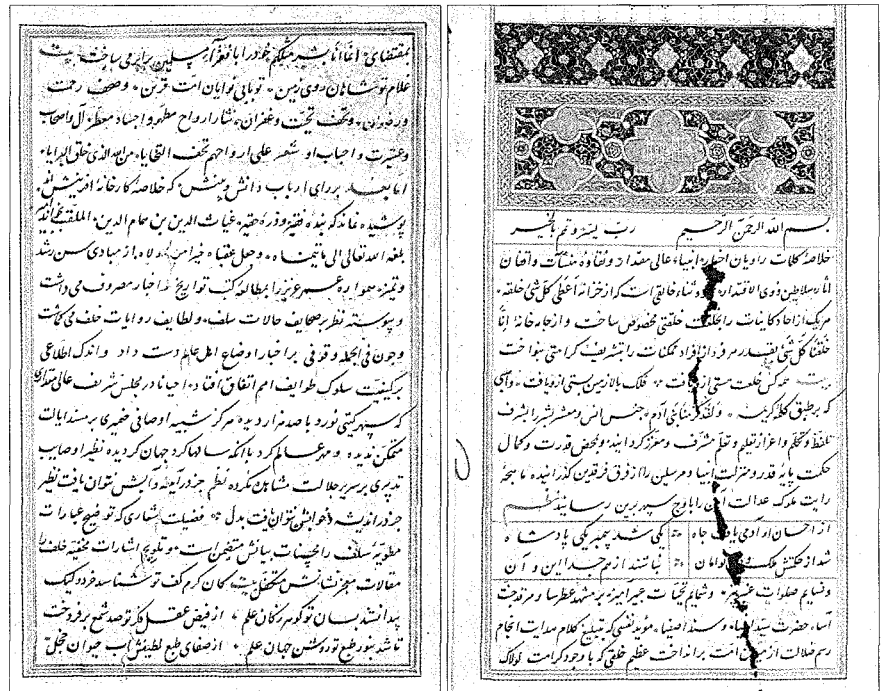 بسم الله الرحمن الرحیم رب یسر و تمم بالخیر
خلاصهٔ کلمات راویان اخبار انبیاء عالی مقدار و نقاوهٔ منشآت واقفان
آثار سلاطین ذوی الاقتدار ثناء خالقی است که از خزانهٔ اعطی کل شی خلقه
هریک از احاد کاینات را بخلعت خلقتی مخصوص ساخت و از جامه خانهٔ انا
خلقنا کل شی بقدر هر فرد از افراد ممکنات را بتشریف کرامتی بنواخت
بیت همه کس خلعت هستی ازو یافت فلک بالا زمین پستی ازو یافت
که بر طبق کلمهٔ کریمه و لقد کرمنا بنی آدم جنس انس و معشر بشر را بشرف
تلفظ و تکلم و اعزاز تعلیم و تعلم مشرف و معزز گردانید و بمحض قدرت و کمال
حکمت پایهٔ قدر و منزلت انبیا و مرسلین را از فرق فرقدین گذرانیده
رایت ملوک عدالت آیین را باوج سپهر برین رسانید نظم
از احسان او آدمی یافت جاه یکی شد پیمبر یکی پادشاه
شد از حکمتش ملک نباشند از هم جدا این و آن
و نسایم صلوات و شمایم تحیات بر مشهد عطرسا و مرقد جنت
آساء حضرت سید انبیا و سند اصفیاء مؤیدی که بتبلیغ کلام هدایت انجام
رسم ضلالت از میان امت برانداخت عظیم خلقی که با وجود کرامت لولاک
بمقتضای انما انا بشر مثلکم خود را با فقراء مسلمین برابر می ساخت بیت
غلام تو شاهان روی زمین تو با بی نوایان امت قرین و صحف رحمت
و رضوان و تحف تحیت و غفران نثار ارواح مطهر و اجساد معطر آل و اصحاب
و عترت و احباب او شعر علی ارواحهم تحف التحایا من الله الذی خلق البرایا
اما بعد بر رای ارباب دانش و بینش که خلاصهٔ کارخانهٔ آفرینش اند
پوشیده نماند که بنده فقیر و ذرهٔ حقیر غیاث الدین بن همام الدین الملقب بخواندمیر
بلغه الله تعالی الی ما یتمناه و جعل عقباه خیرا من اولاه از مبادی سن رشد
و تمیز همواره عمر عزیز را بمطالعه کتب تواریخ و اخبار مصروف می داشت
و پیوسته نظر بر صحایف حالات سلف و لطایف روایات خلف می گماشت
و چون فی الجمله وقوفی بر اخبار و اوضاع اهل عالم دست داد و اندک اطلاعی
بر کیفیت سلوک طوایف امم اتفاق افتاد احیانا در مجلس شریف عالی مقداری
که سپهر گیتی نورد با صد هزار دیده هرگز شبیه او صافی ضمیری بر مسند ایالت
متمکن ندیده و مهر عالم گرد با آنکه سالها گرد جهان گردیده نظیر او صایب
تدبیری بر سریر جلالت مشاهده نکرده نظم جز در آینه و آبش نتوان یافت نظیر
جز در اندیشه و خوابش نتوان یافت بدل فضیلت شعاری که توضیح عبارات
مطویهٔ سلف را محسنات بیانش متضمن است و تلویح اشارات مخفیهٔ خلف را
مقالات معجز نشانش متکفل بیت کان کرم کف تو شناسد خرد ولیک
پیدا نشد بسان تو گوهر ز کان علم از فیض عقل فکر تو صد شمع برفروخت
تا شد بنور طبع تو روشن جهان علم از صفای طبع لطیفش آب حیوان خجل